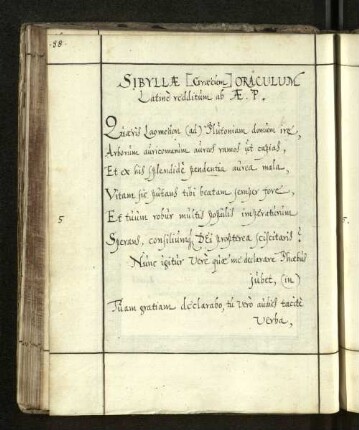 88.
SIBYLLÆ [Græcum] ORACULUM
Latinè redditum ab Æ. P.
Quæris Laomeδον (ad) Plutoniam domum ire,
Arborum auricomarum aureos ramos ut capias,
Et ex his splendidè pendentia aurea mala,
Vitam sic putans tibi beatam semper fore,
5 Et tuum robur multis populis imperaturum
Sperans, consiliumq; Dei propterea sciscitaris?
Nunc igitur verè quæ me declarare Phœbus
jubet, (in)
Tuam gratiam declarabo, tu verò audies tacitè
verba,